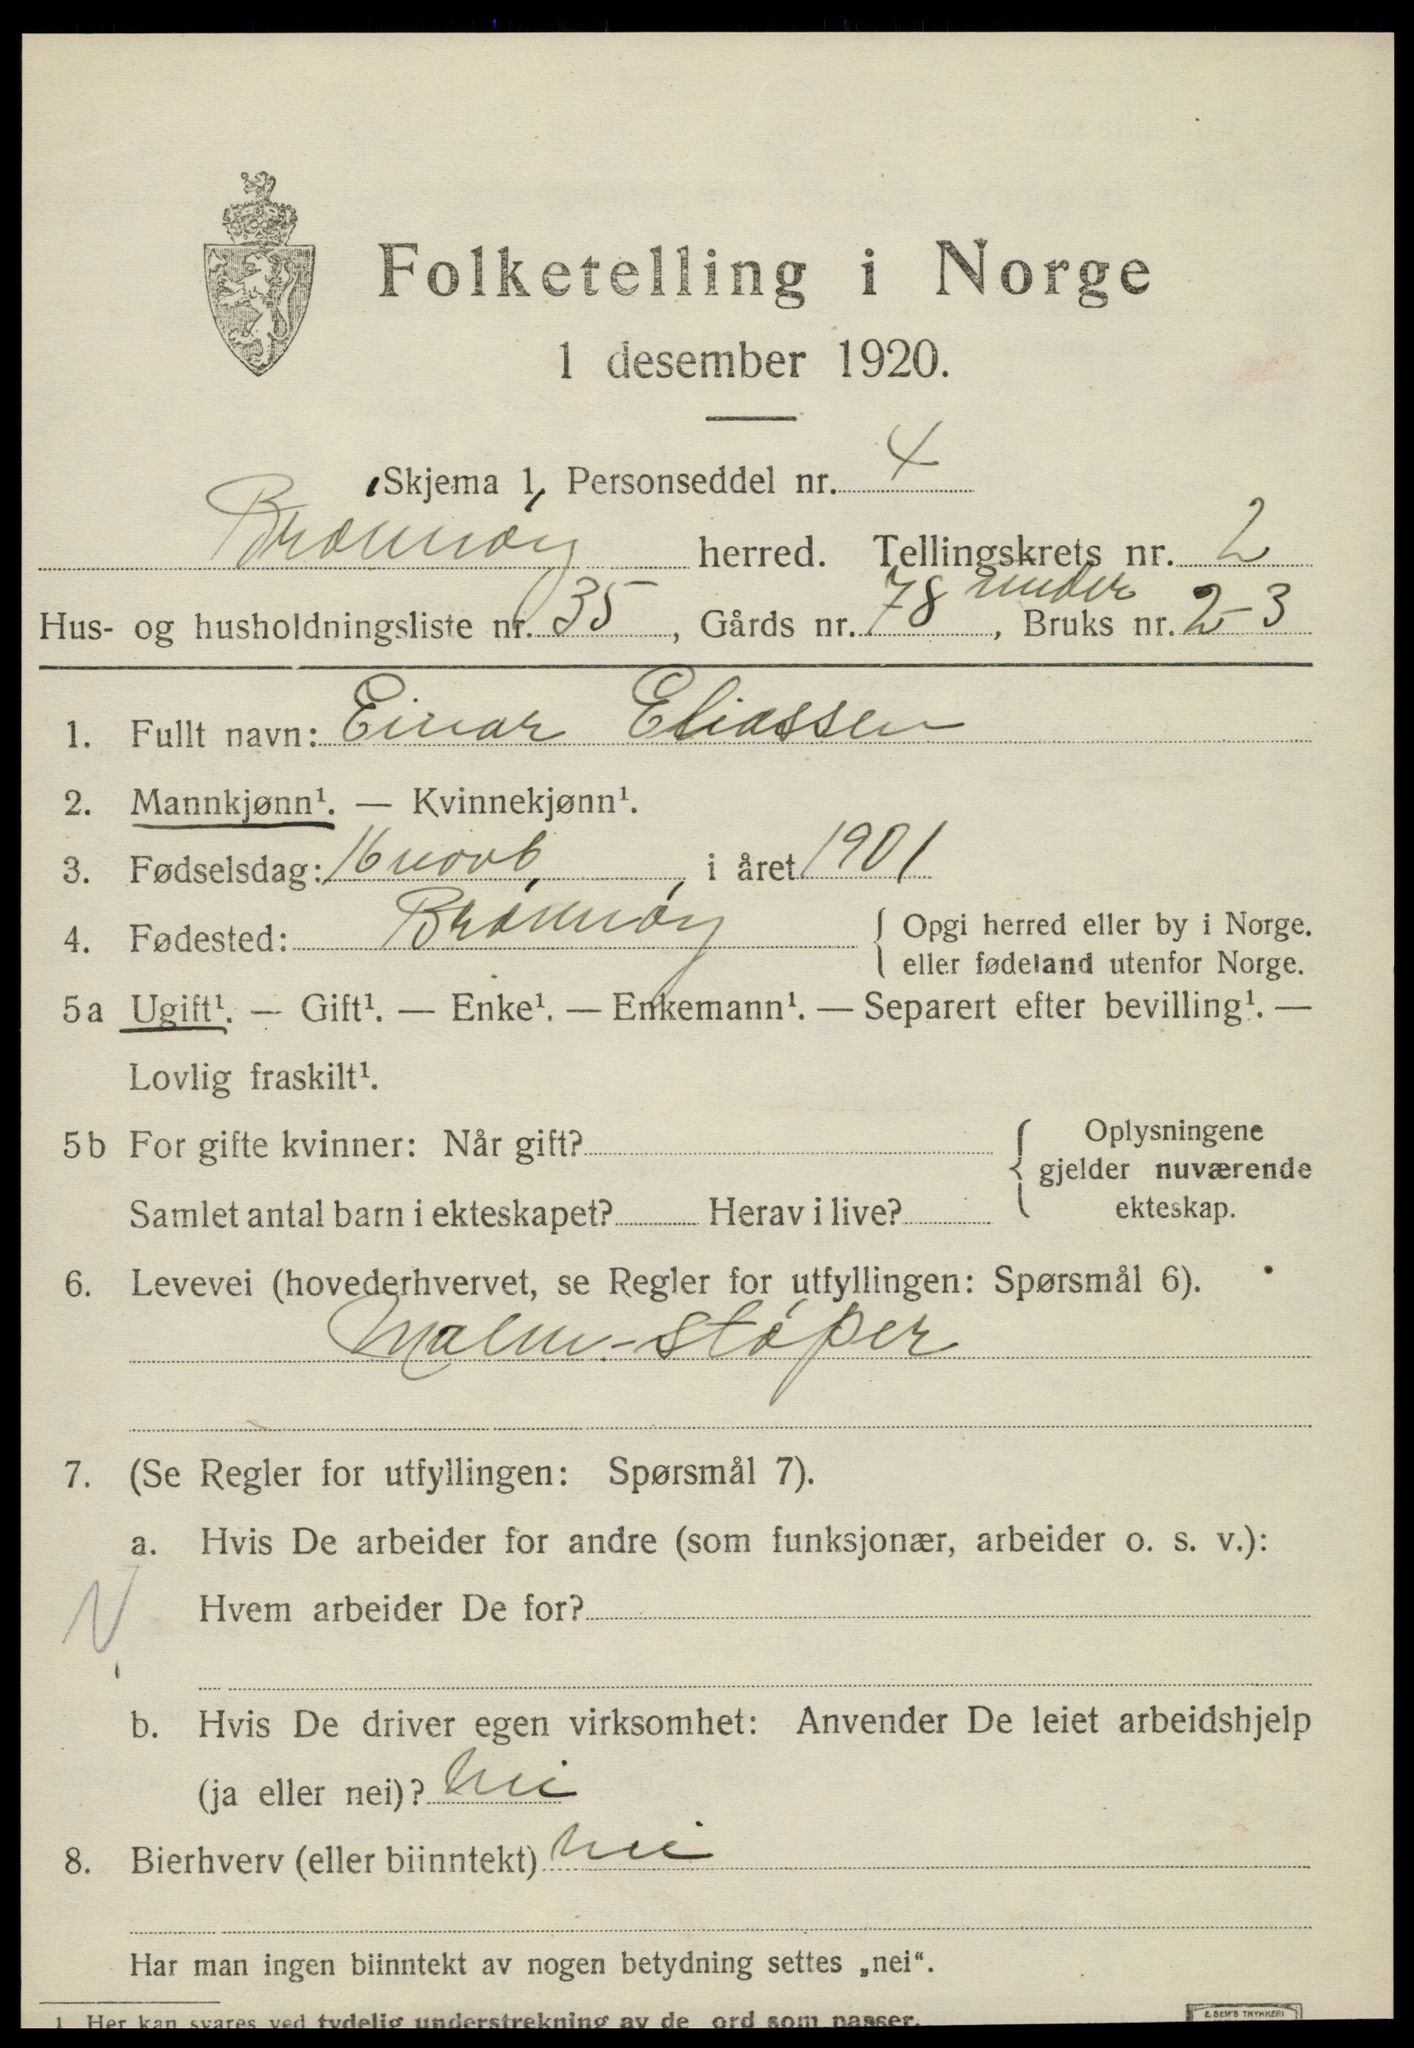 Folketelling i Norge
1 desember 1920.
Skjema 1, Personseddel nr. 4
Brønnøy herred. Tellingskrets nr. 2
Hus- og husholdningsliste nr. 35, Gårds nr. 78 under, Bruks nr. 2-3
1. Fullt navn: Einar Eliassen
2. Mannkjønn¹. — Kvinnekjønn¹.
3. Fødselsdag: 16 novb, i året 1901
4. Fødested: Brønnøy { Opgi herred eller by i Norge.
eller fødeland utenfor Norge.
5a Ugift¹. — Gift¹. — Enke¹. — Enkemann¹. — Separert efter bevilling¹. —
Lovlig fraskilt¹.
5b For gifte kvinner: Når gift? { Oplysningene
gjelder nuværende
Samlet antal barn i ekteskapet? Herav i live? ekteskap.
6. Levevei (hovederhvervet, se Regler for utfyllingen: Spørsmål 6).
Malm-støper
7. (Se Regler for utfyllingen: Spørsmål 7).
a. Hvis De arbeider for andre (som funksjonær, arbeider o. s. v.):
Hvem arbeider De for?
b. Hvis De driver egen virksomhet: Anvender De leiet arbeidshjelp
(ja eller nei)? nei
8. Bierhverv (eller biinntekt) nei
Har man ingen biinntekt av nogen betydning settes „nei“.
1. Her kan svares ved tydelig understrekning av de ord som passer.
E. SEM'S TRYKKERI